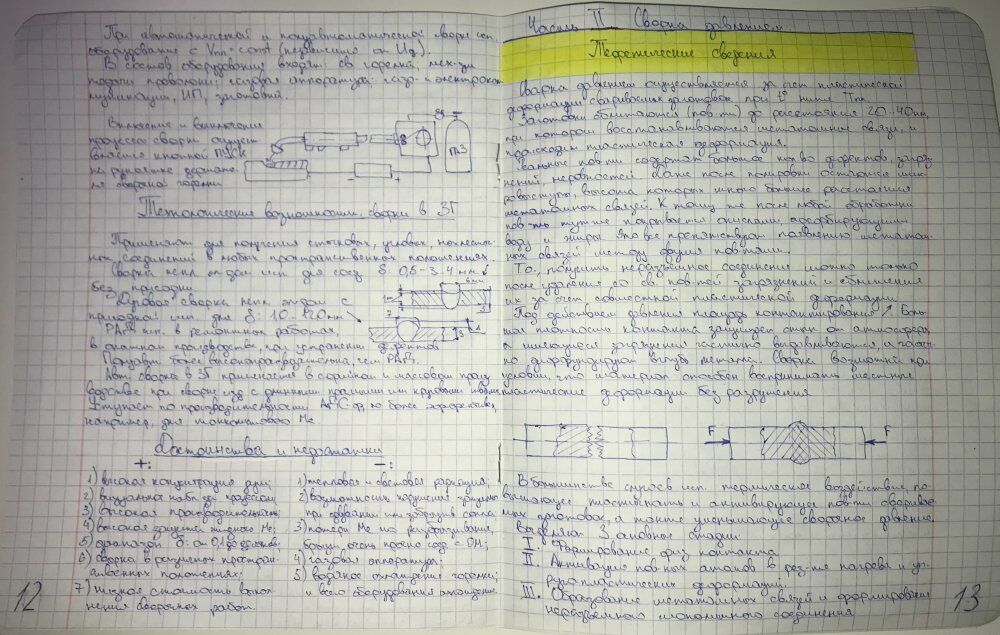 При автоматической и полуавтоматической сварке исп.
оборудование с Vпп = const (независимо от Uд).
В состав оборудования входят: св. горелка, мех-зм
подачи проволоки, газовая аппаратура, газо- и электроком-
муникации, ИП, заготовка.
Включение и выключение
процесса сварки осущест
вляется кнопкой ПУСК
на рукоятке держате
ля сварочной горелки
Технологические возможности сварки в ЗГ
Применяют для получения стыковых, угловых, нахлесточ-
ных соединений в любых пространственных положениях.
Сварка непл. эл-дом исп. для соед. δ 0,8-3..4 мм
без присадки.
Дуговая сварка непл. эл-дом с
присадкой исп. для δ: 10..120 мм
РАД исп. в ремонтных работах,
в опытном производстве, при устранении дефектов
Полуавт. более высокопроизводительна, чем РАД.
Авт. сварка в ЗГ применяется в серийном и массовом произ
водстве при сварке изд. с длинными прямыми или круговыми швами
Уступает по производительности АДСФ, но более эффективна,
например, для тонколистового Ме
Достоинства и недостатки
+:
1) высокая концентрация дуги;
2) визуальное набл. за процессом;
3) высокая производительность;
4) высокая защита жидкого Ме;
5) диапазон δ: от 0,1 до десятков;
6) сварка в различных простран-
ственных положениях;
7) низкая стоимость выпол-
нения сварочных работ.
-:
1) тепловая и световая радиация;
2) возможность нарушения защиты
при сдувании или забрызг. сопла
3) потери Ме на разбрызгивание,
4) газовая аппаратура;
5) водяное охлаждение горелки;
12
Часть II Сварка давлением
Теоретические сведения
Сварка давлением осуществляется за счет пластической
деформации свариваемых заготовок при t° ниже Тпл
Заготовки сближаются (пов-ти) до расстояния 20..40нм,
при котором восстанавливаются металлич. связи, и
происходит пластическая деформация.
Реальные пов-ти содержат большое кол-во дефектов, загряз
нений, неровностей. Даже после полировки остаются мик
ровыступы, высота которых много больше расстояния
металлических связей. К тому же после любой обработки
пов-ть тут же покрывается окислами, адсорбирующими
воду и жиры. Это все препятствует появлению металлич-
ных связей между двумя пов-тями.
Т.о., получить неразъемное соединение можно только
после удаления со св. пов-тей загрязнений и сближения
их за счет совместной пластической деформации
Под действием давления площадь контактирования ↗. Боль
шая плотность контакта защищает стык от атмосферы,
а имеющиеся загрязнения частично выдавливаются, а части-
но диффундируют вглубь металла. Сварка возможна при
условии, что материал способен воспринимать местные
пластические деформации без разрушения
F F
В большинстве случаев исп. термическое воздействие, по-
вышающее пластичность и активирующее пов-ти сваривае
мых заготовок, а также уменьшающее сварочное давление.
Выделяют 3 основные стадии:
I. Формирование физ. контакта
II. Активация пов-ных атомов в рез-те нагрева и уп-
ругопластических деформаций.
III. Образование металлических связей и формирование
неразъемного монолитного соединения
13